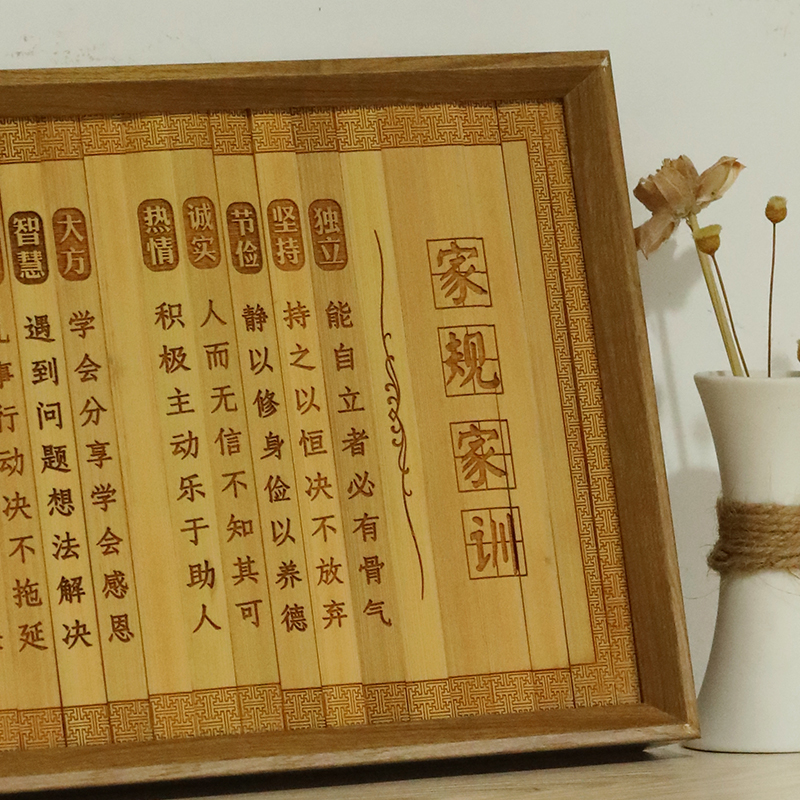 家规家训
独立
能自立者必有骨气
坚持
持之以恒决不放弃
节俭
静以修身俭以养德
诚实
人而无信不知其可
热情
积极主动乐于助人
大方
学会分享学会感恩
智慧
遇到问题想法解决
事行动决不拖延